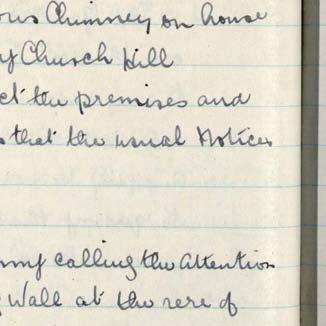 ous Chimney on house
y Church Hill
ct the premises and
s that the usual Notices
calling the Attention
Wall at the rere of